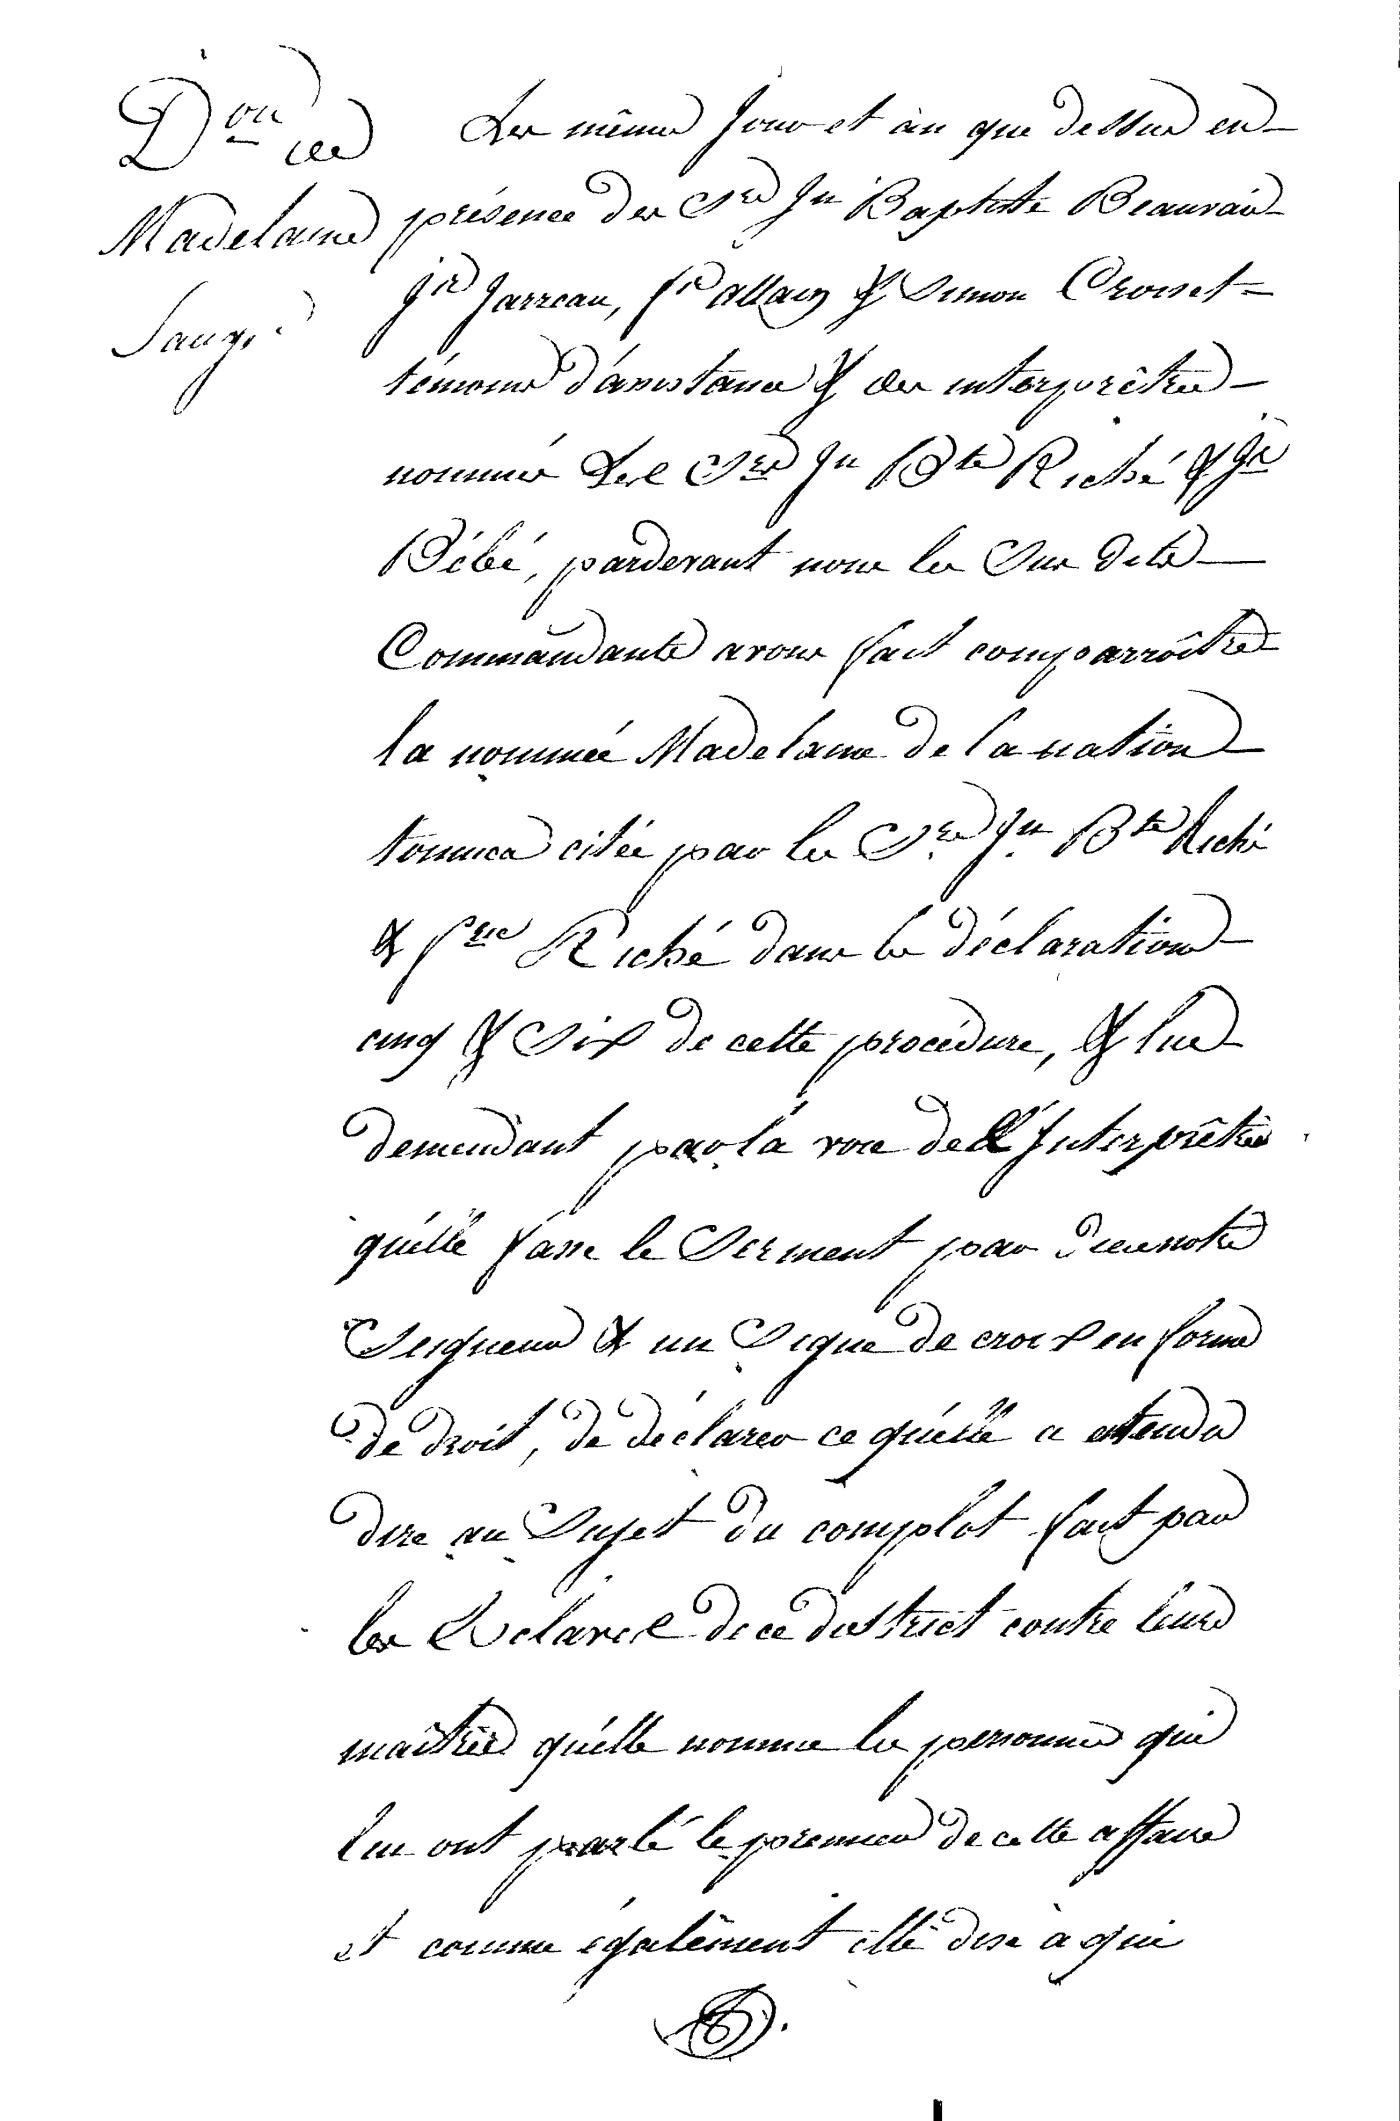 D.on de
Madelaine
Sauvg.e
Les même Jour et àn que dessus en
présence des Srs Jn Baptiste Beauvais
jn Jarreau, fs allain & Simon Croiset
témoins d'assistance & des interprêtes
nommés Les Srs Jn Bte Riché & Jn
Bébé, pardevant nous les Sus dits
Commandants avons fait comparroître
la nommée Madelaine de la nation
tonnica citée par les Srs Jn Bte Riché
& fne Riché dans les déclarations
cinq & Six de cette procédure, & lui
demendant par la voix de L'Interprêtes
qu'élle fasse le Serment par Dieu notre
Seigneur & un Signe de croix en forme
de droit, de déclarer ce qu'elle a entendu
dire au Sujet du complot fait par
les Esclaves de ce district contre leurs
maîtres qu'élle nomme les personnes qui
lui ont parlé le premier de cette affaire
et comme égalêment éllé dise à qui